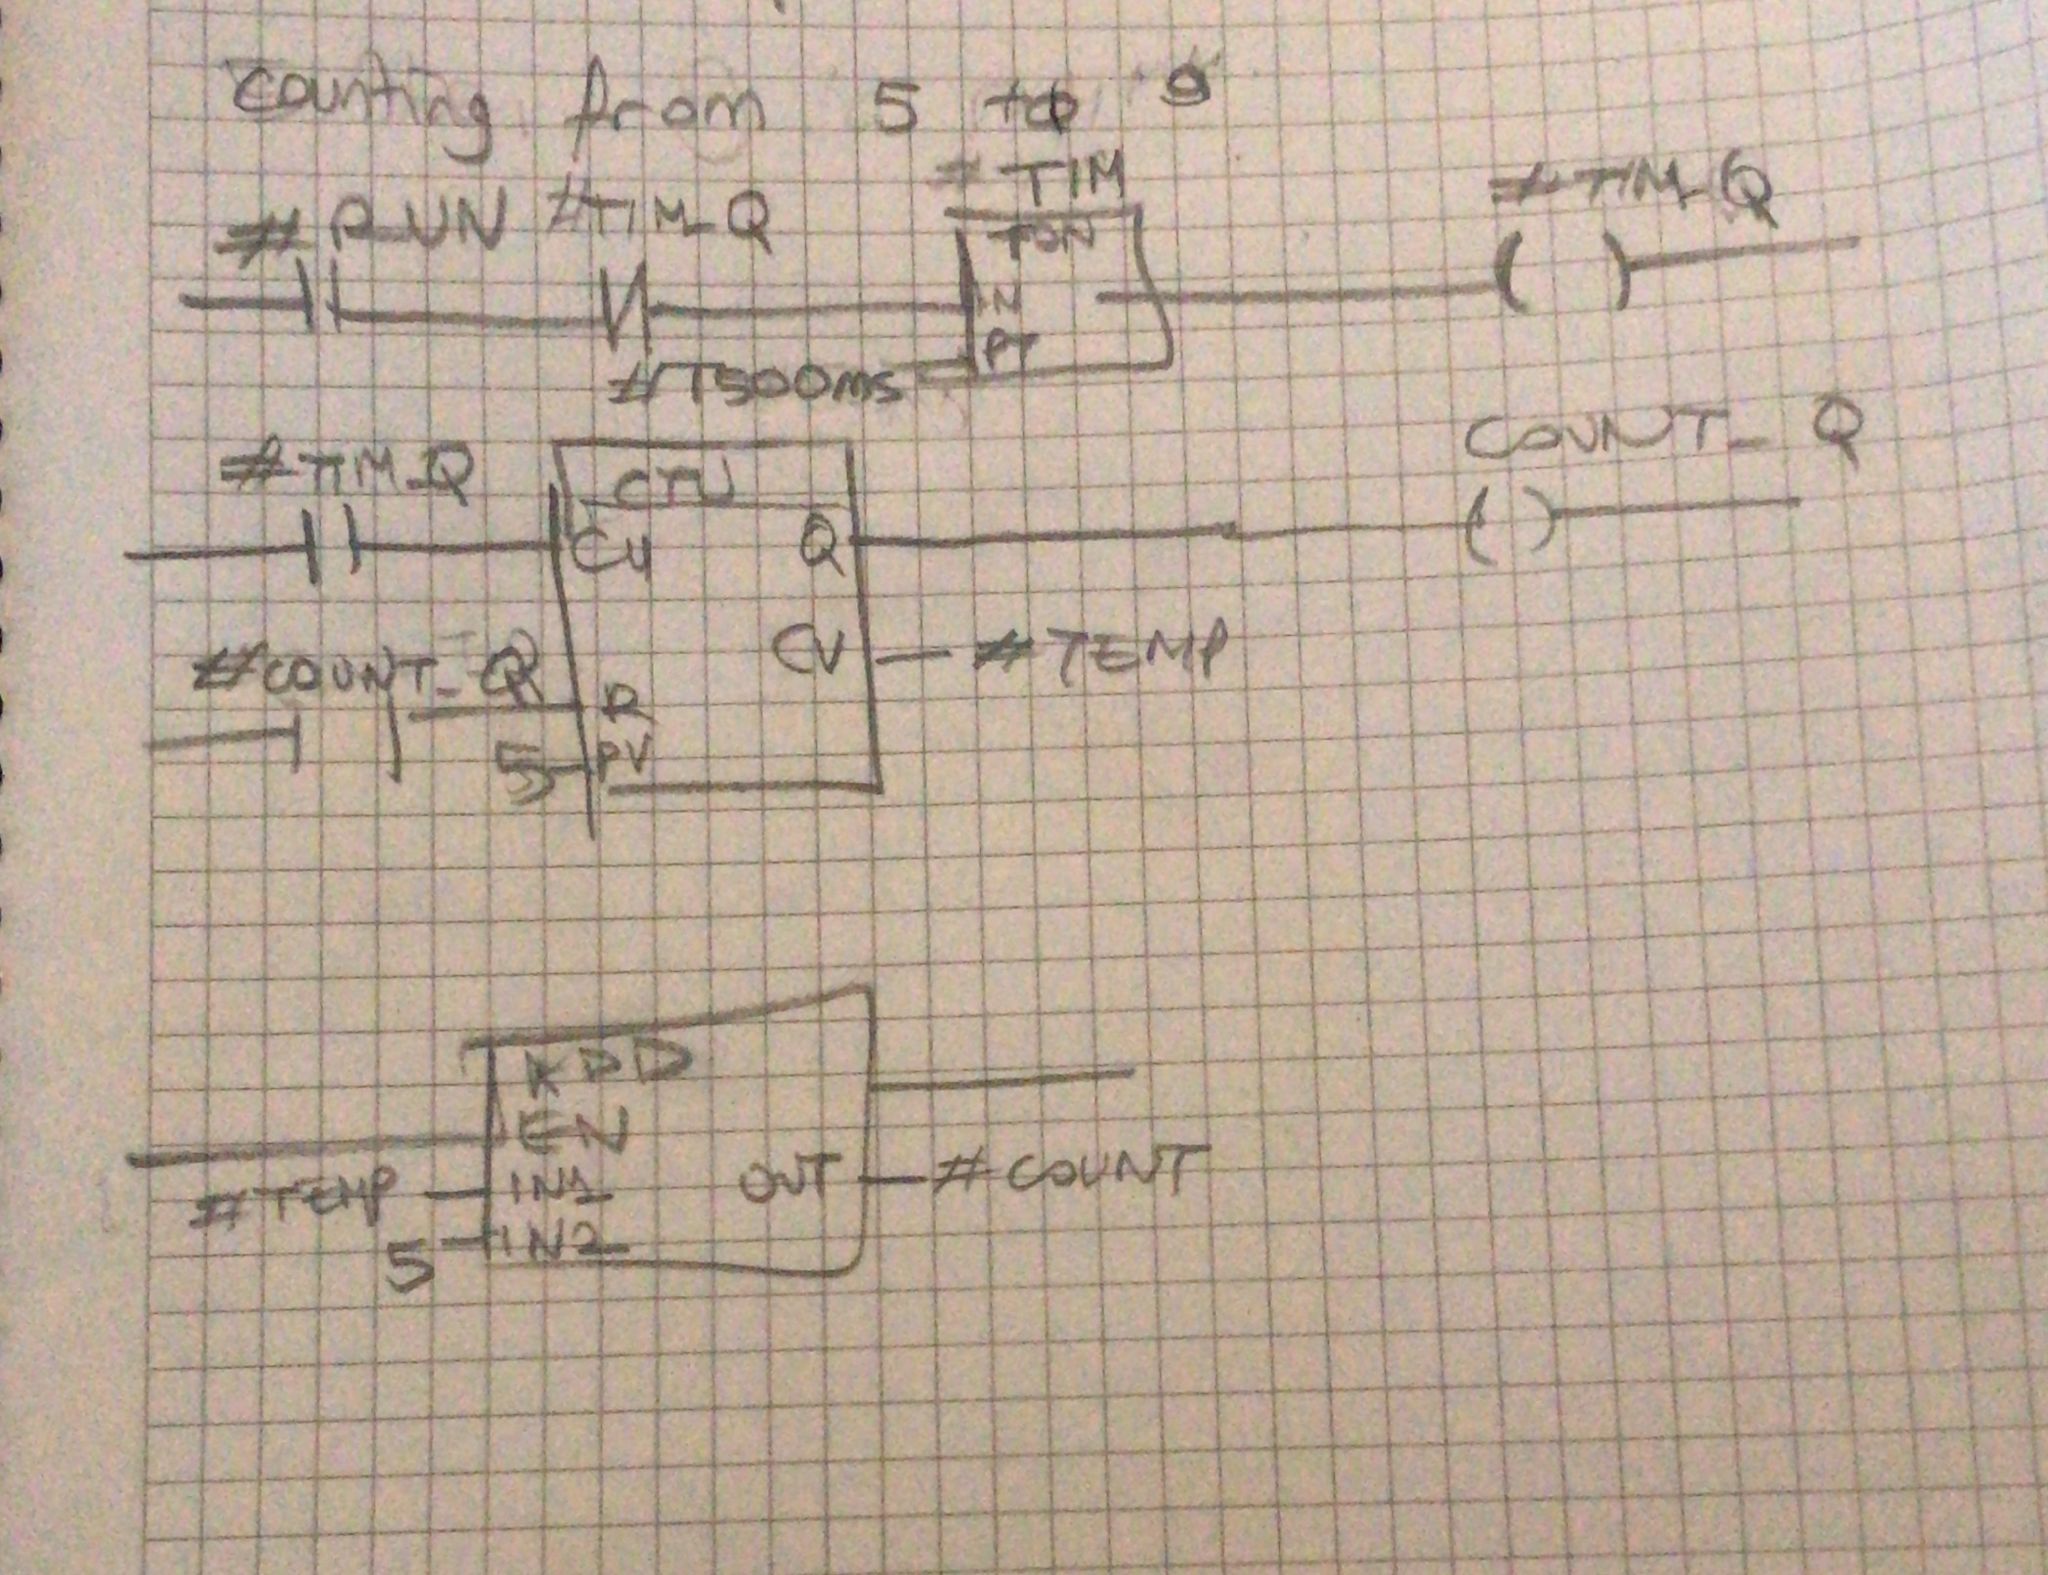 counting from 5 to 9
# TIM
#TIM_Q
#RUN #TIM_Q
TON
IN
PT
#T500ms
COUNT_Q
#TIM_Q
CTU
CU Q
#COUNT_Q
CV #TEMP
R
5 PV
ADD
EN
#TEMP IN1 OUT #COUNT
5 IN2